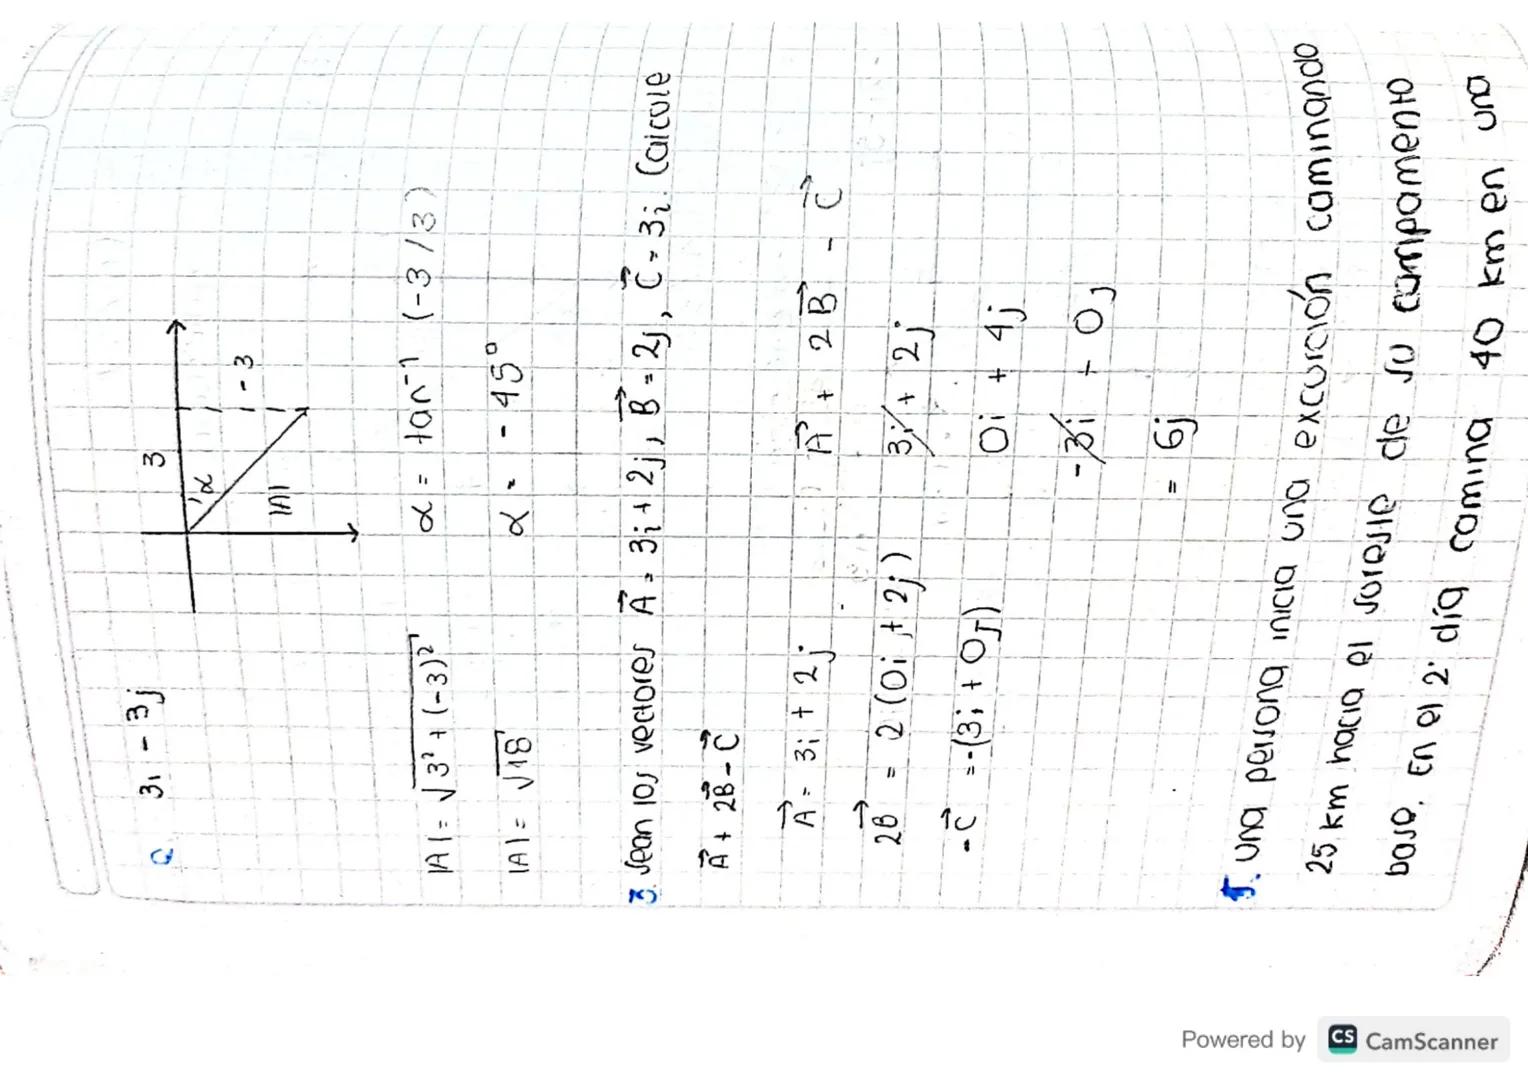 a. 3i - 3j
3
α
|A|
- 3
|A| = √3² + (-3)²    α = tan⁻¹ (-3/3)
|A| = √18    α = - 45°
3. Sean los vectores A⃗ = 3i + 2j, B⃗ = 2j, C⃗ = 3i. Calcule
A⃗ + 2B⃗ - C⃗
A⃗ = 3i + 2j    A⃗ + 2B⃗ - C⃗
2B⃗ = 2 (0i + 2j)    3i + 2j
-C⃗ = -(3i + 0j)    0i + 4j
-3i + 0j
= 6j
5. Una persona inicia una excurción caminando
25 km hacia el sureste de su campamento
base. En el 2° día camina 40 km en una
Powered by CS CamScanner